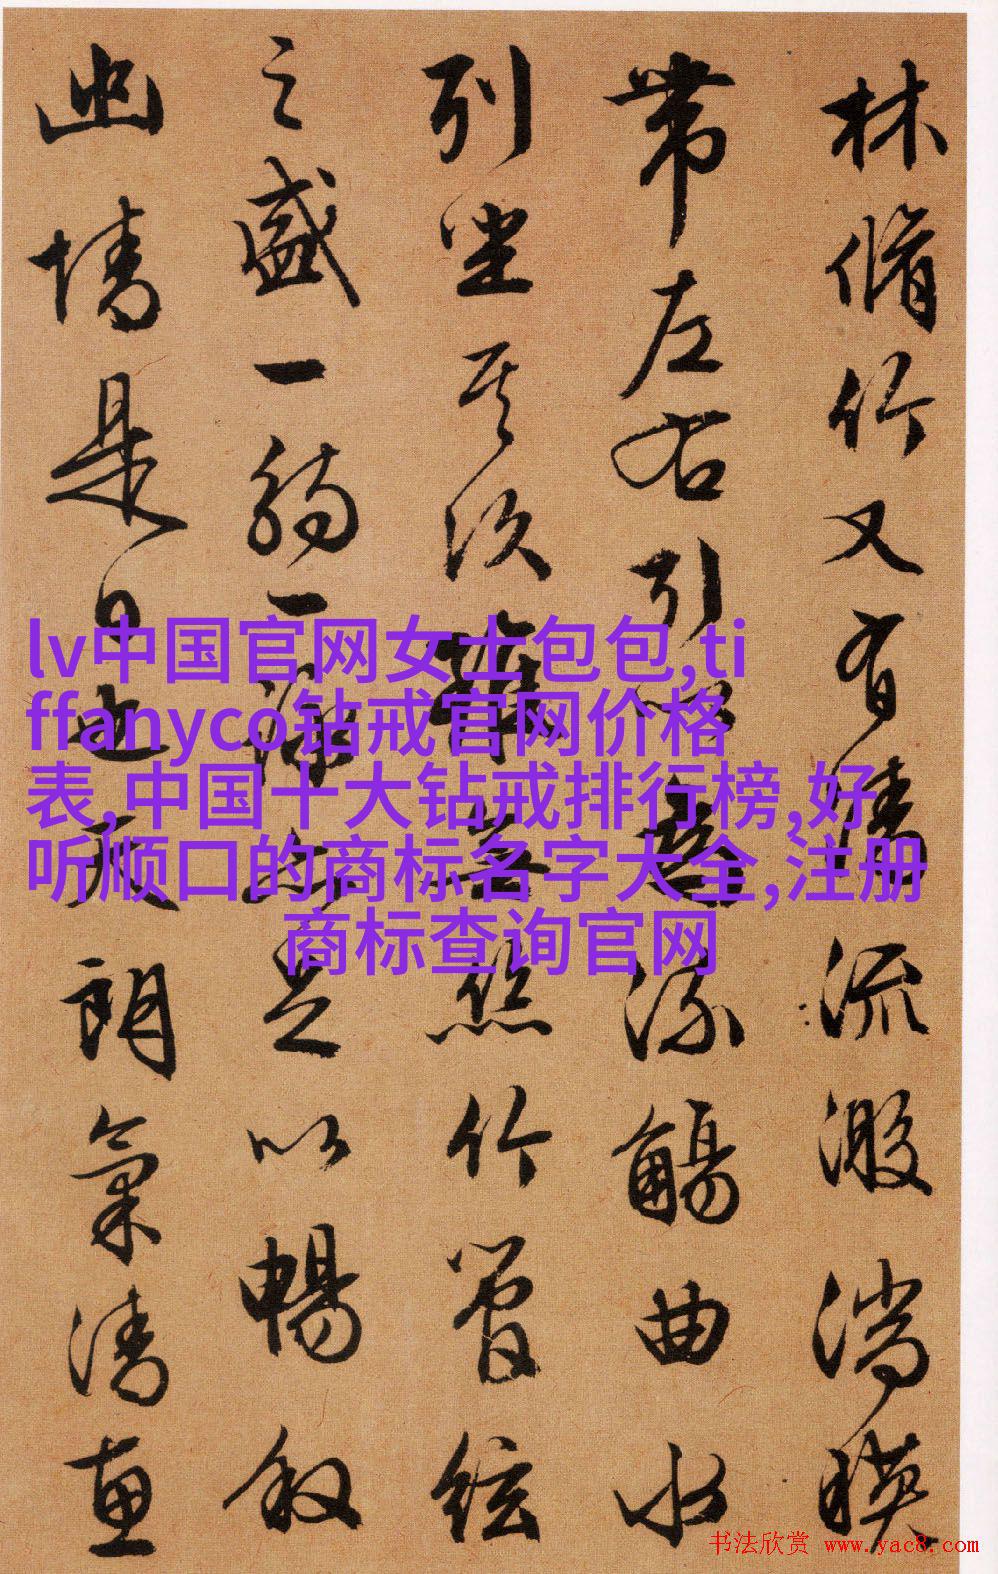 林脩竹又有清流激湍暎
帶左右引以為流觴曲水
列坐其次雖無絲竹管絃
之盛一觴一詠亦足以暢叙
幽情是日也天朗氣清惠
lv中国官网女士包包,ti
ffanyco钻戒官网价格
表,中国十大钻戒排行榜,好
听顺口的商标名字大全,注册
商标查询官网
书法欣赏 www.yac8.com